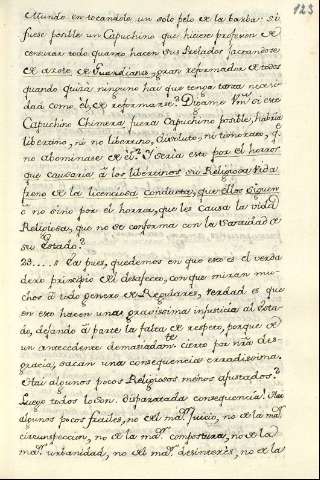 123
Mundo en tocandole un solo pelo de la barba: si
fuese posible un Capuchino que hiciere profesion de
censurar todo quanto hacen sus Prelados jactandose
de azote de Guardianes, gran reformador de todos
quando quiza ninguno hai que tenga tanta necesi-
dad como él, de reformarse? Digame Vm. si este
Capuchino Chimera fuera Capuchino posible, habria
libertino, ni no libertino, disoluto, ni timorato, q.
no abominase de él? Y seria esto por el horror
que causaria á los libertinos su Religiosa Vida
freno de la licenciosa conducta, que ellos siguen
o no sino por el horror, que les causa la vida
Religiosa, que no se conforma con la Santidad de
su Estado?
23. Ea pues, quedemos en que este es el verda
dero principio del desafecto, con que miran mu-
chos á todo genero de Regulares, verdad es que
en esto hacen una gravissima injusticia al Esta-
do, dejando á parte la falta de respeto, porque de
un antecedente demasiadamte. cierto por nra. des-
gracia, sacan una consequencia erradissima.
Hai algunos pocos Religiosos menos ajustados?
Luego todos lo son. Disparatada consequencia! Hai
algunos pocos frailes, no del maor. juicio, no de la maor.
circunspeccion, no de la maor. compostura, no de la
maor. urbanidad, no del maor. desinteres, no de la